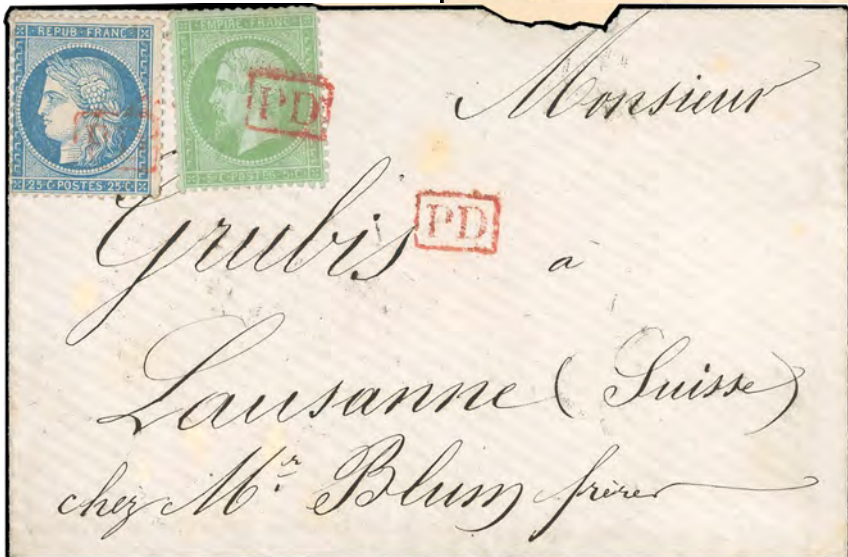 REPUB·FRANC·
25·C·POSTES·25·C·
EMPIRE·FRANC·
5·C·POSTES·5·C·
PD
PD
Monsieur
Grubis
PD
a
Lausanne (Suisse)
chez Mr. Blum frères